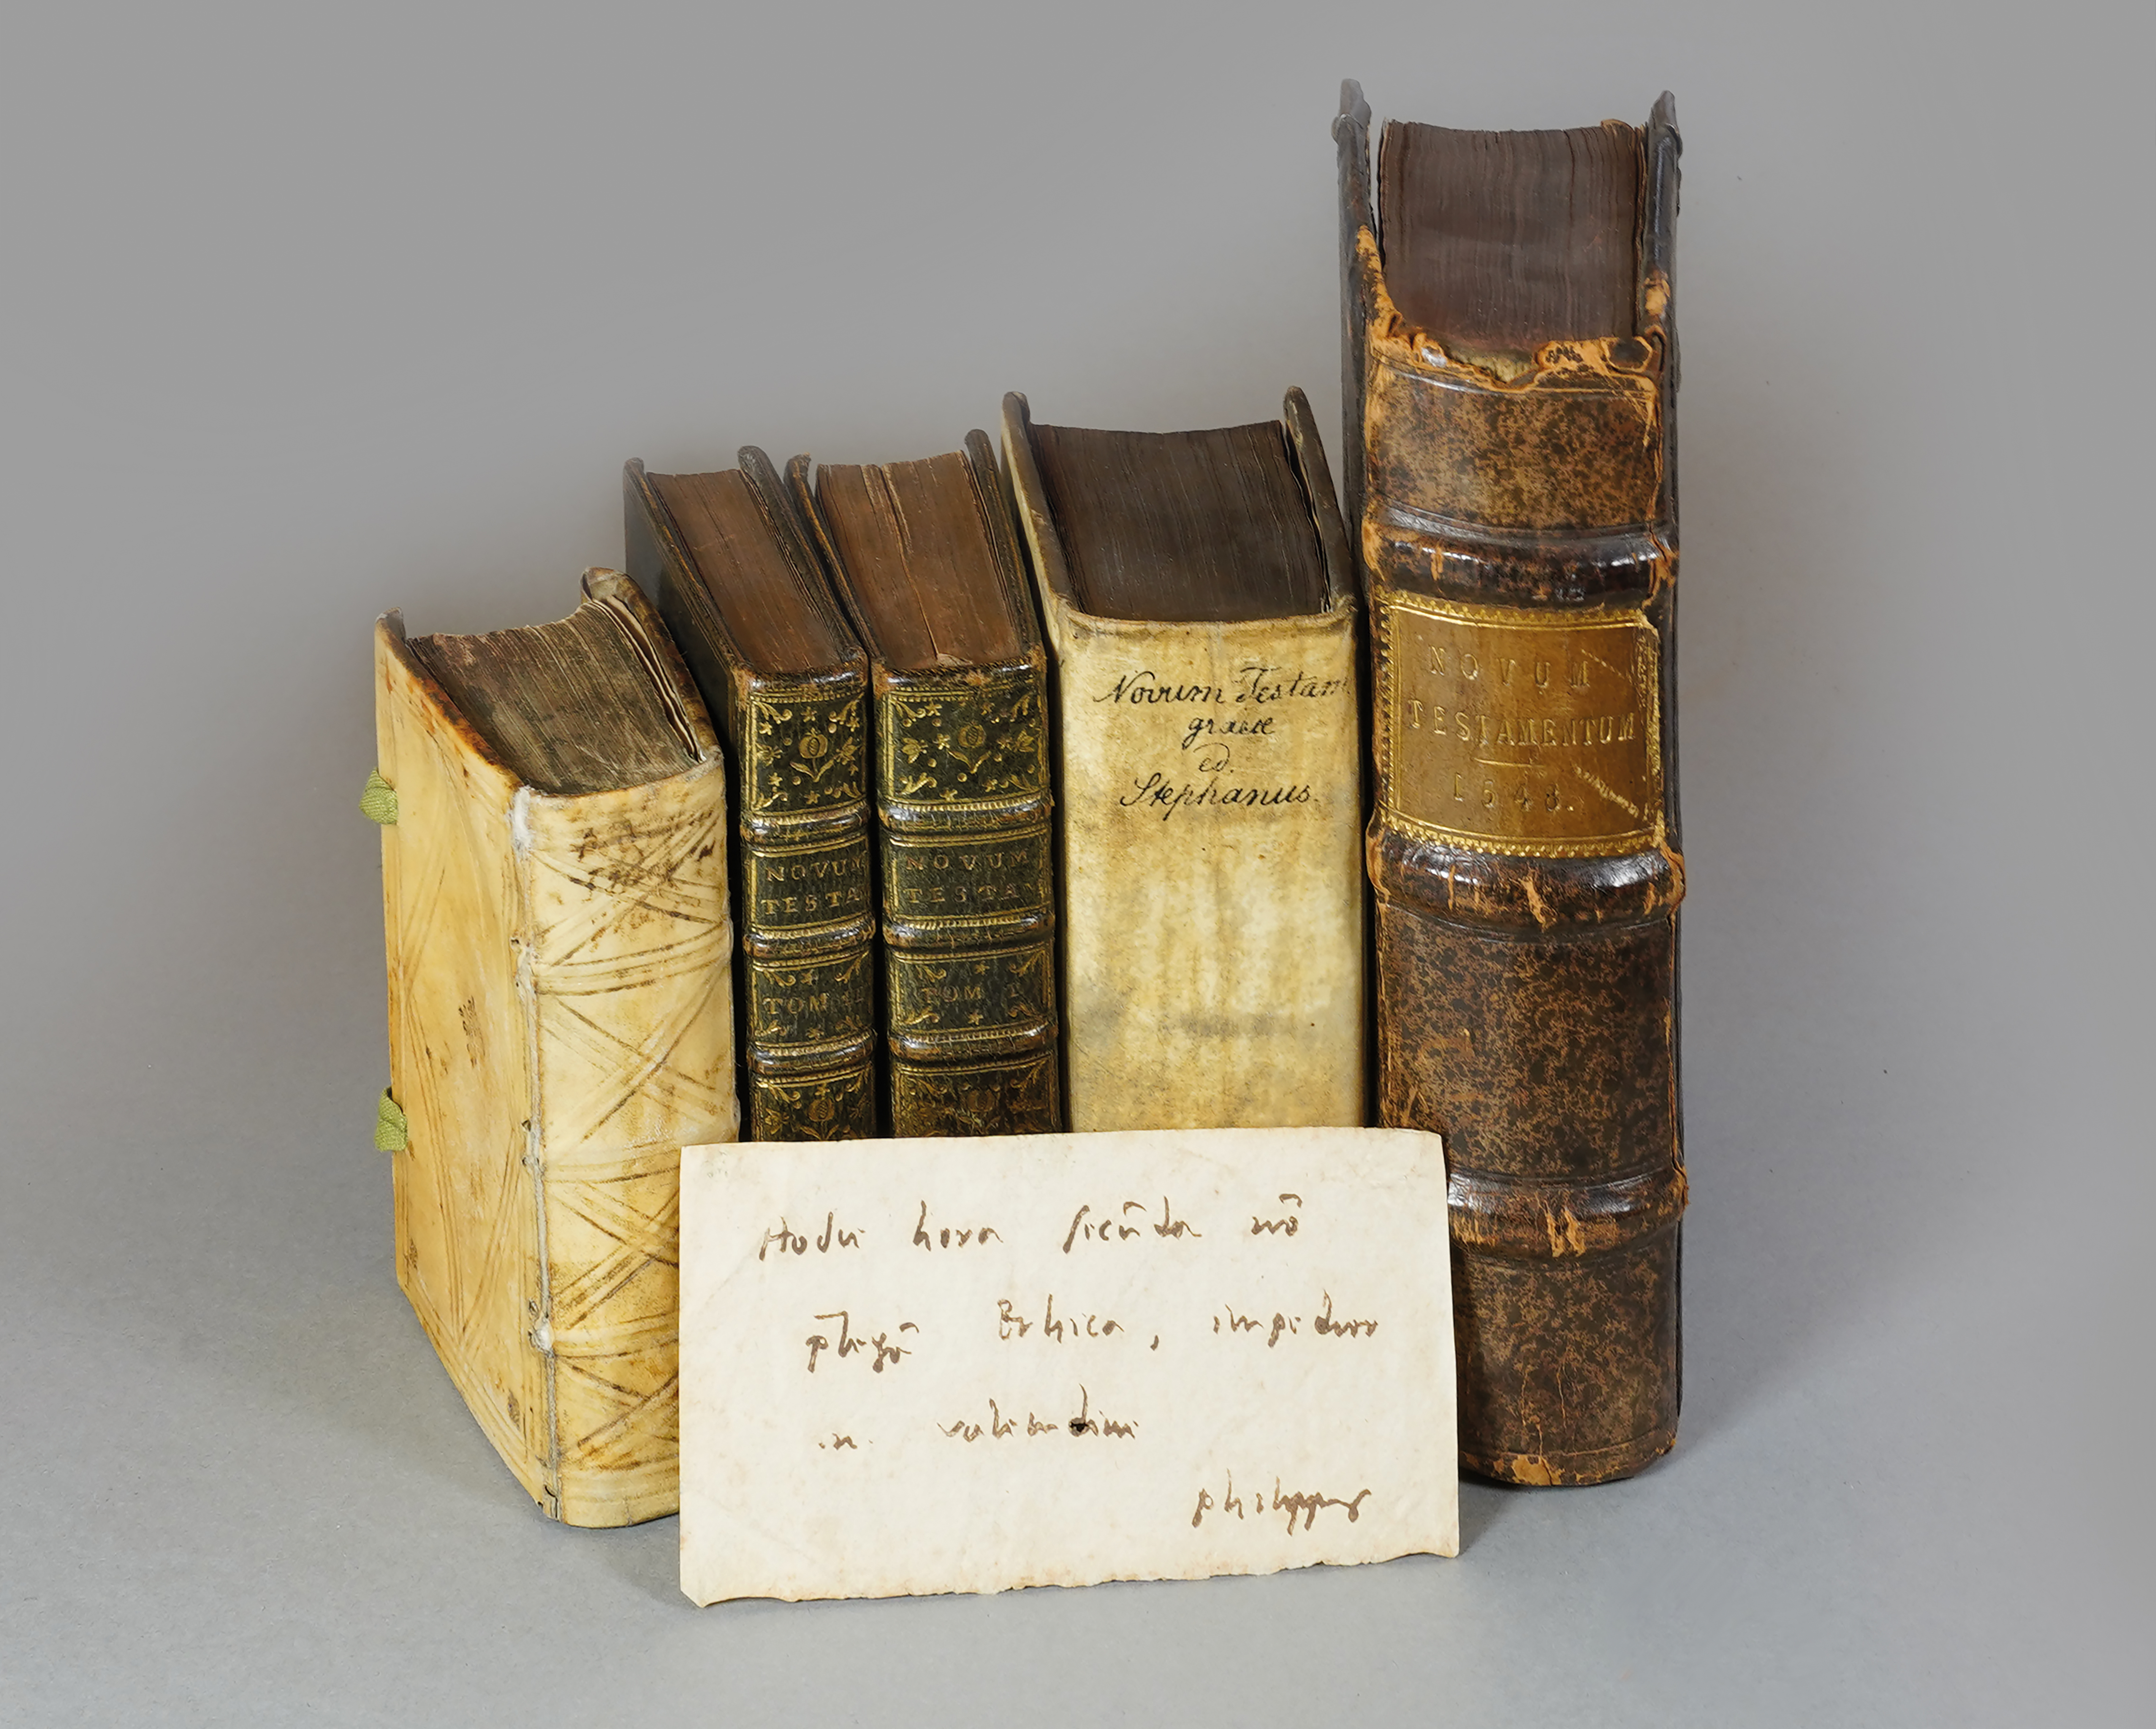 NOVUM
TESTA
TOM
NOVUM
TESTAM
TOM I
Novum Testam
graece
ed.
Stephanus.
NOVUM
TESTAMENTUM
1543.
Hodie hora secūda nō
p̄legā Ethica, impedior
valetudine
philippus